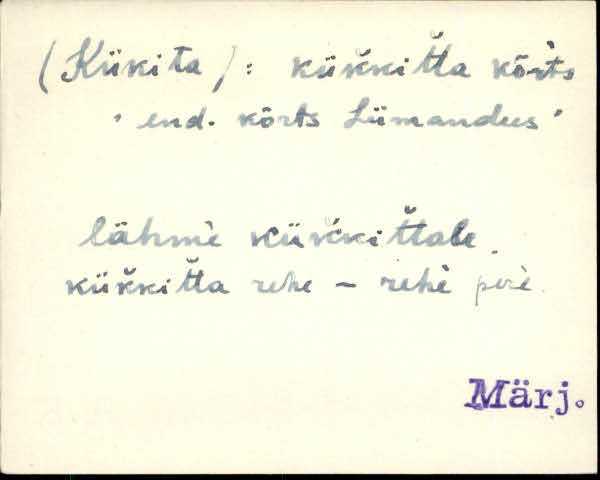 (Kükita): kük̆kit̆ta kõrts
' end. kõrts Liimandus '
lähmè kük̆kit̆tale
kük̆kit̆ta rehe – rehè perè
Märj.